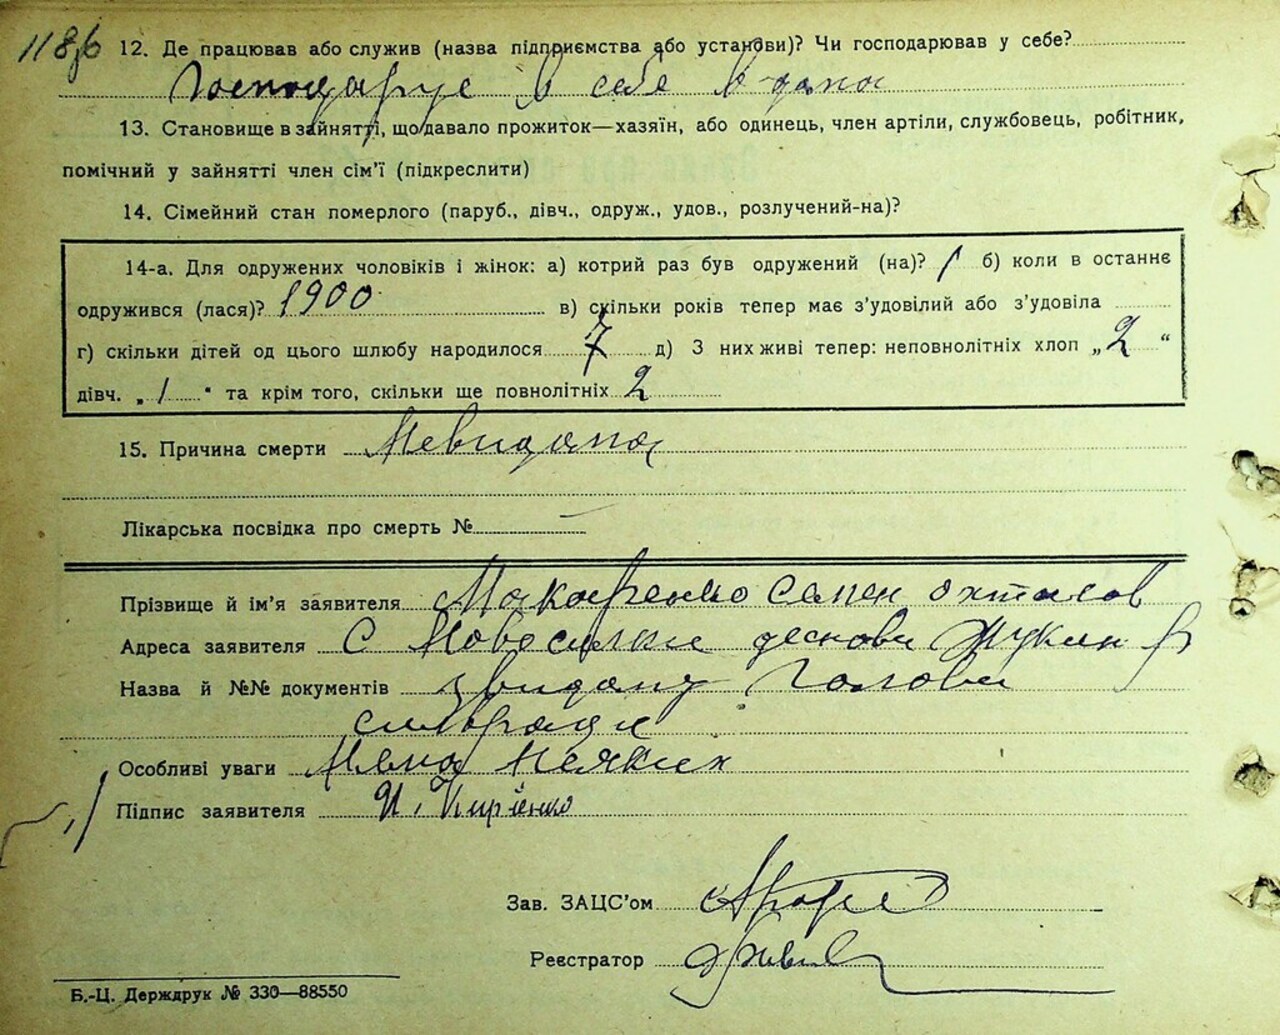 118б 12. Де працював або служив (назва підприємства або установи)? Чи господарював у себе?
Господарує в себе вдома
13. Становище в зайнятті, що давало прожиток—хазяїн, або одинець, член артіли, службовець, робітник,
помічний у зайнятті член сім'ї (підкреслити)
14. Сімейний стан померлого (паруб., дівч., одруж., удов., розлучений-на)?
14-а. Для одружених чоловіків і жінок: а) котрий раз був одружений (на)? 1 б) коли в останнє
одружився (лася)? 1900 в) скільки років тепер має з'удовілий або з'удовіла
г) скільки дітей од цього шлюбу народилося 7 д) З них живі тепер: неповнолітніх хлоп „2“
дівч. „1“ та крім того, скільки ще повнолітніх 2
15. Причина смерти Невидома
Лікарська посвідка про смерть №
Прізвище й ім'я заявителя Макаренко Семен
Адреса заявителя С Новосилки
Назва й №№ документів Голови
сильради
Особливі уваги Нема Неяких
Підпис заявителя
Зав. ЗАЦС'ом
Реєстратор
Б.-Ц. Держдрук № 330—88550